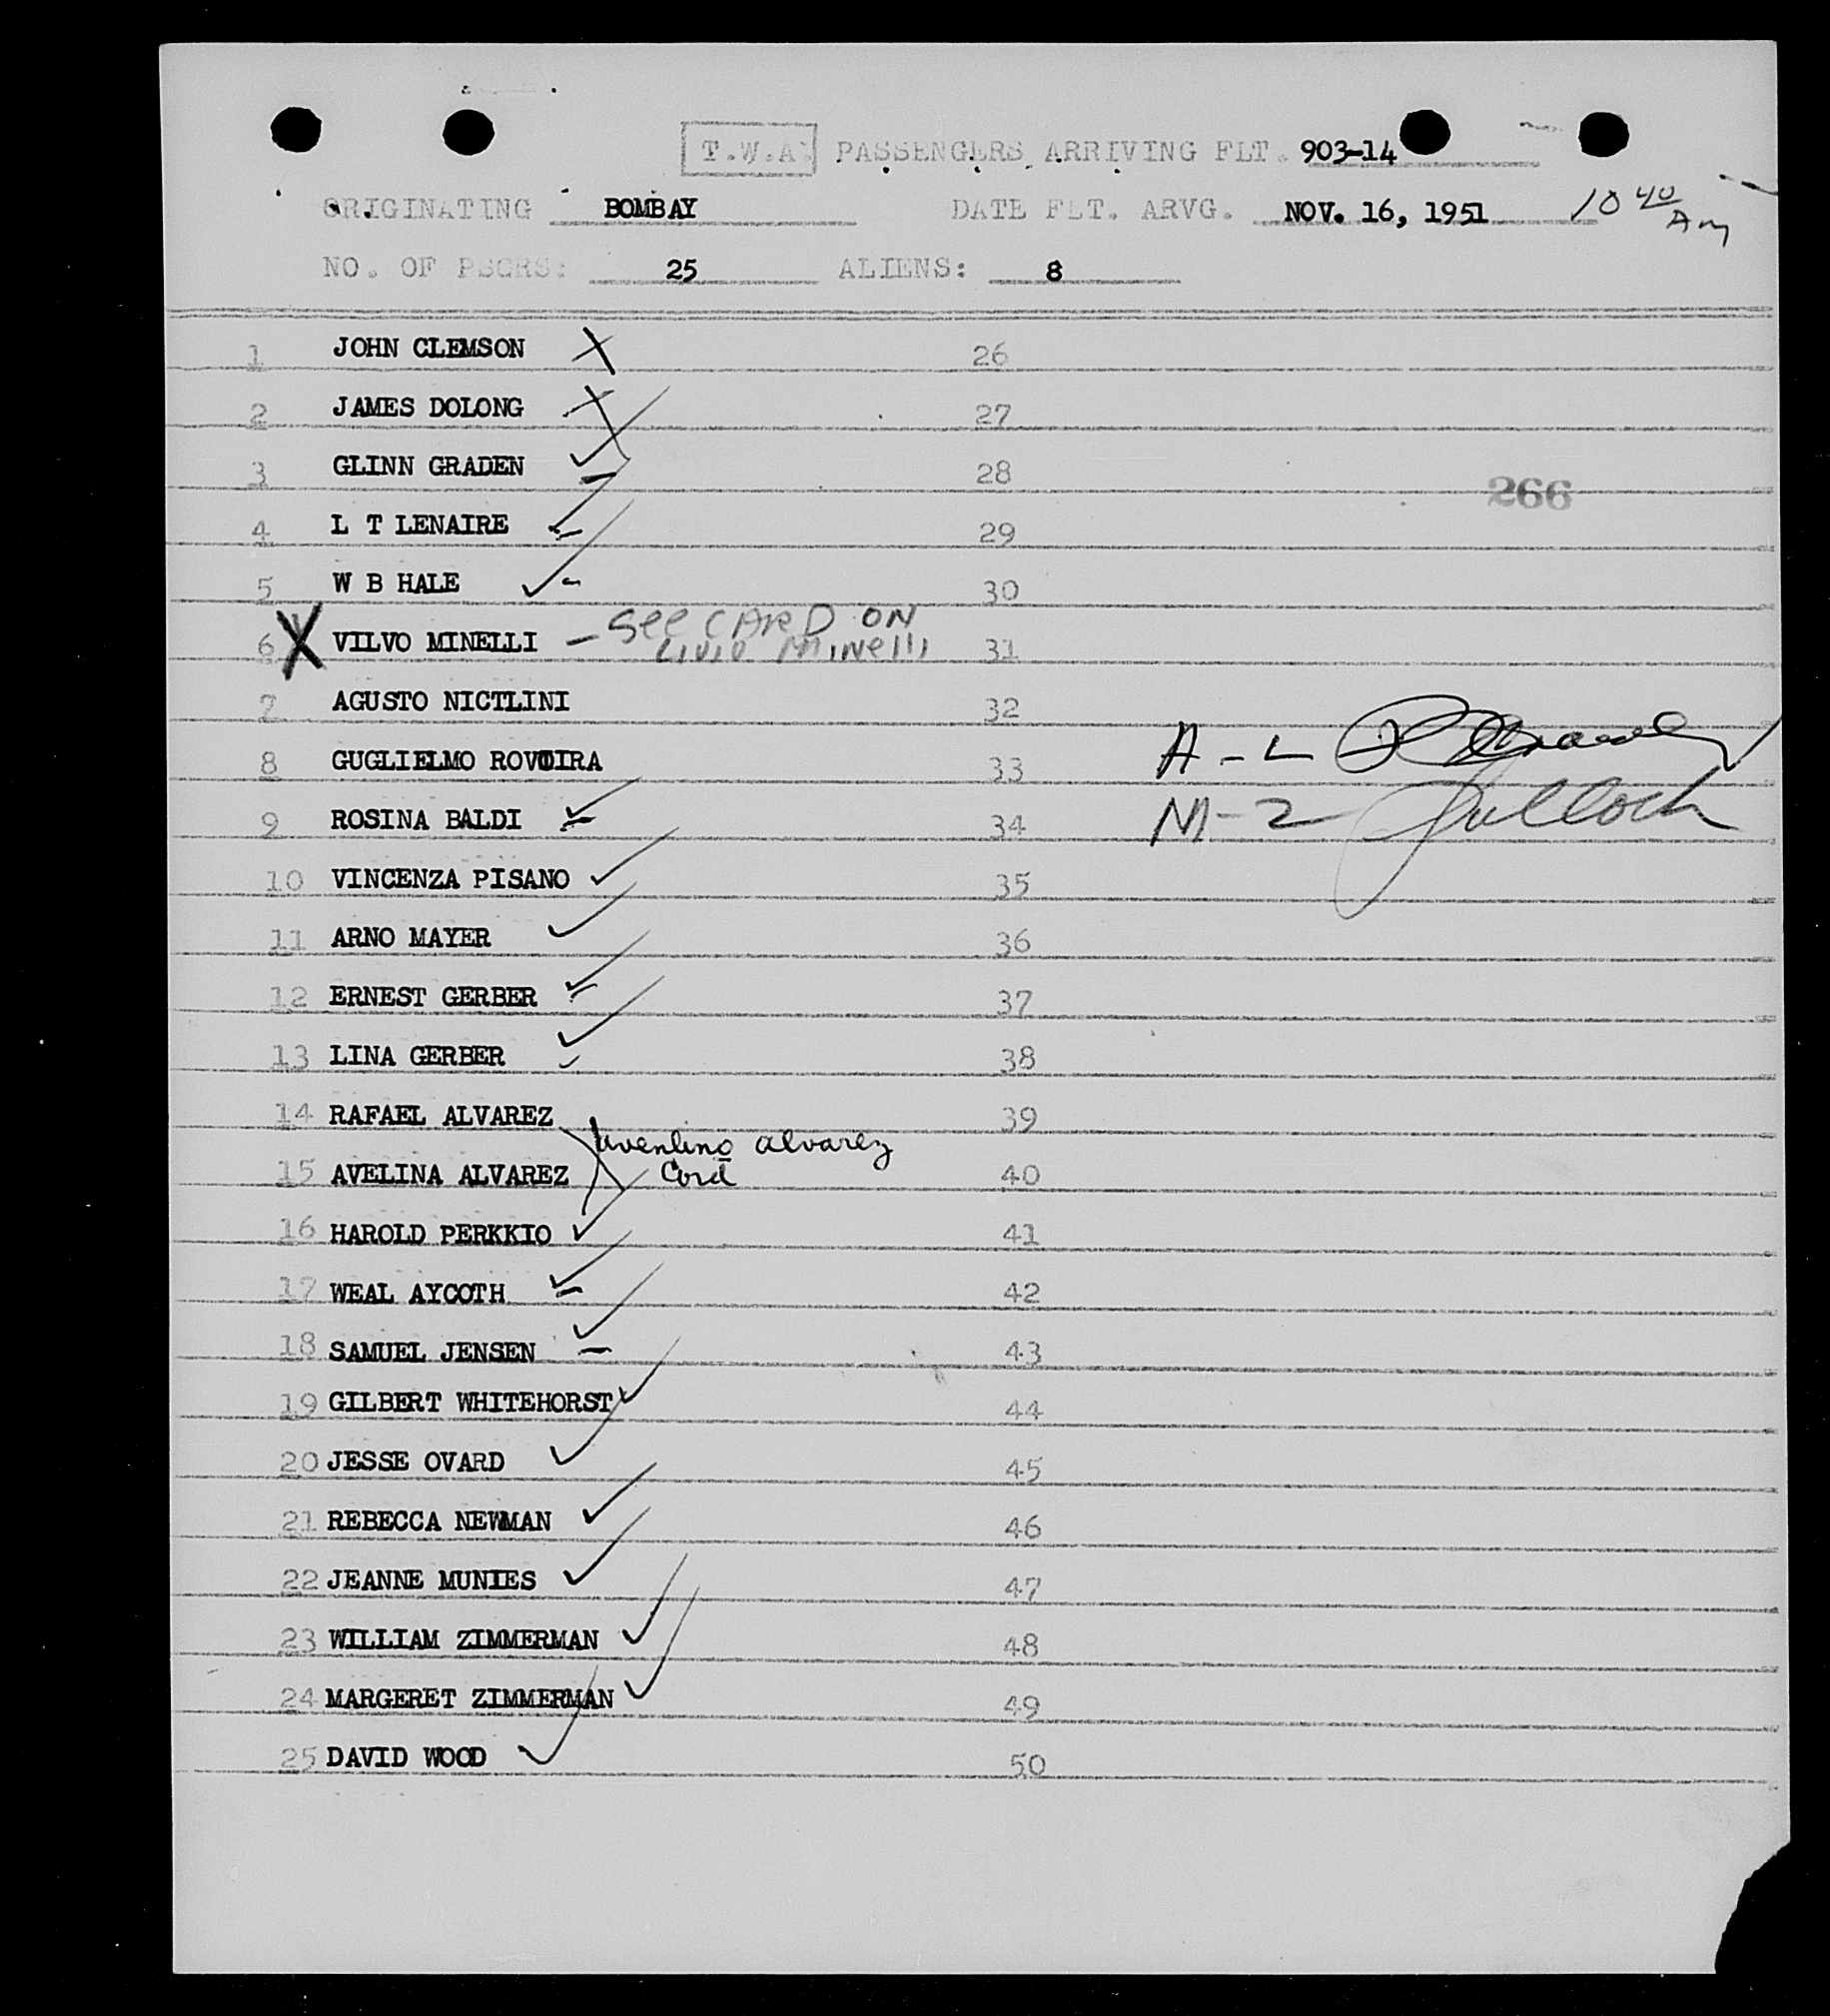 T.W.A. PASSENGERS ARRIVING FLT. 903-14
ORIGINATING BOMBAY DATE FLT. ARVG. NOV. 16, 1951 10 40 AM
NO. OF PSGRS: 25 ALIENS: 8
1 JOHN CLEMSON 26
2 JAMES DOLONG 27
3 GLINN GRADEN 28
266
4 L T LENAIRE 29
5 W B HALE 30
6 X VILVO MINELLI - See CARD ON 31
Livio Minelli
7 AGUSTO NICTLINI 32
8 GUGLIELMO ROVOIRA 33 A - L
9 ROSINA BALDI 34 M - 2
10 VINCENZA PISANO 35
11 ARNO MAYER 36
12 ERNEST GERBER 37
13 LINA GERBER 38
14 RAFAEL ALVAREZ 39
alvarez
15 AVELINA ALVAREZ Card 40
16 HAROLD PERKKIO 41
17 WEAL AYCOTH 42
18 SAMUEL JENSEN 43
19 GILBERT WHITEHORST 44
20 JESSE OVARD 45
21 REBECCA NEWMAN 46
22 JEANNE MUNIES 47
23 WILLIAM ZIMMERMAN 48
24 MARGERET ZIMMERMAN 49
25 DAVID WOOD 50